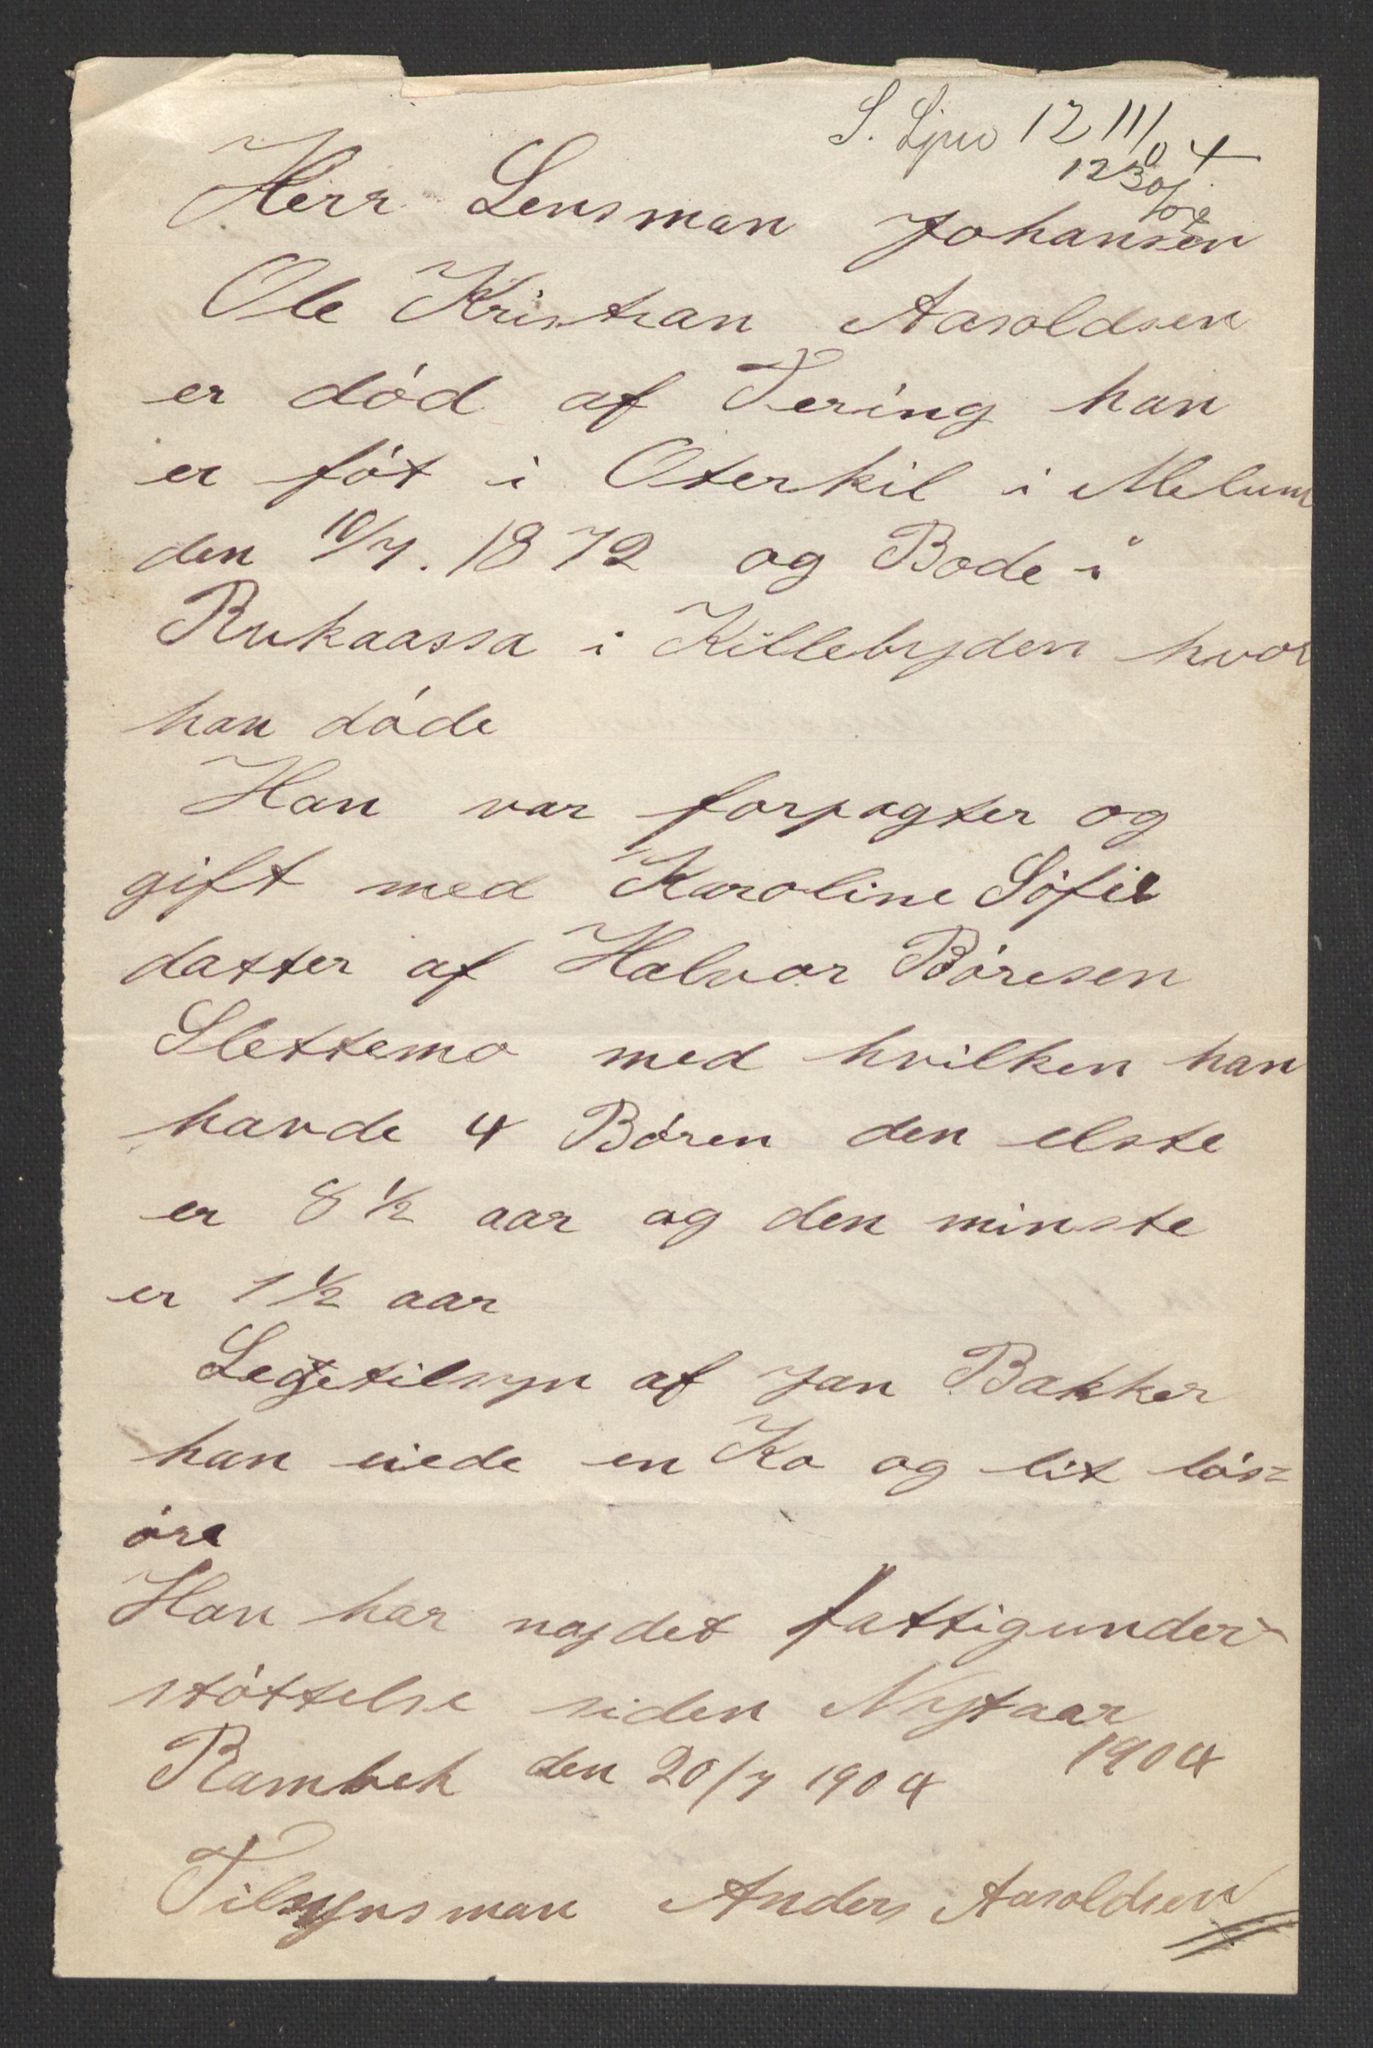 S. Ljno 12 111
Herr Lensman Johansen
Ole Kristian Aasoldsen
er død af Tering han
er føt i Oterkil i Melum
den 10/7. 1872 og Bode i
Rukaassa i Killebygden hvor
han døde
Han var forpagter og
gift med Karoline Søfie
datter af Halvor Børesen
Slettemo med hvilken han
havde 4 Børen den elste
er 8 ½ aar og den minste
er 1 ½ aar
Legetilsyn af Jan Bakker
han eiede en Ko og lit løs=
øre
Han har nøjdet fattigunder-
støttelse siden Nytaar
1904
Rambek den 20/7 1904
Tilsynsman Anders Aasoldsen